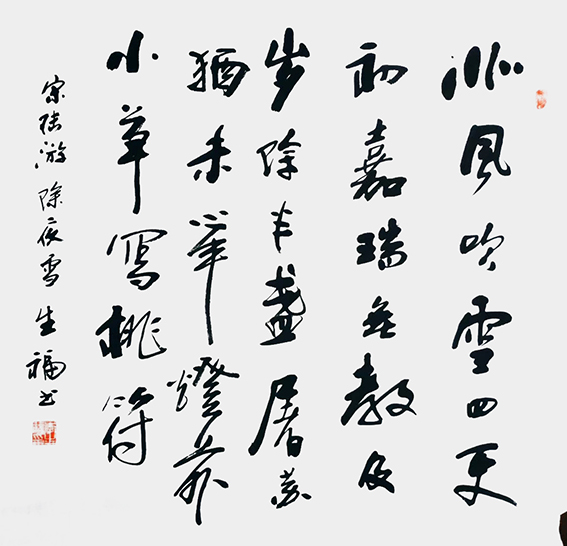 北風吹雪四更
初嘉瑞無教及
岁除半盞屠苏
猶未举燈前
小草寫桃符
宋陸游除夜雪 生福书